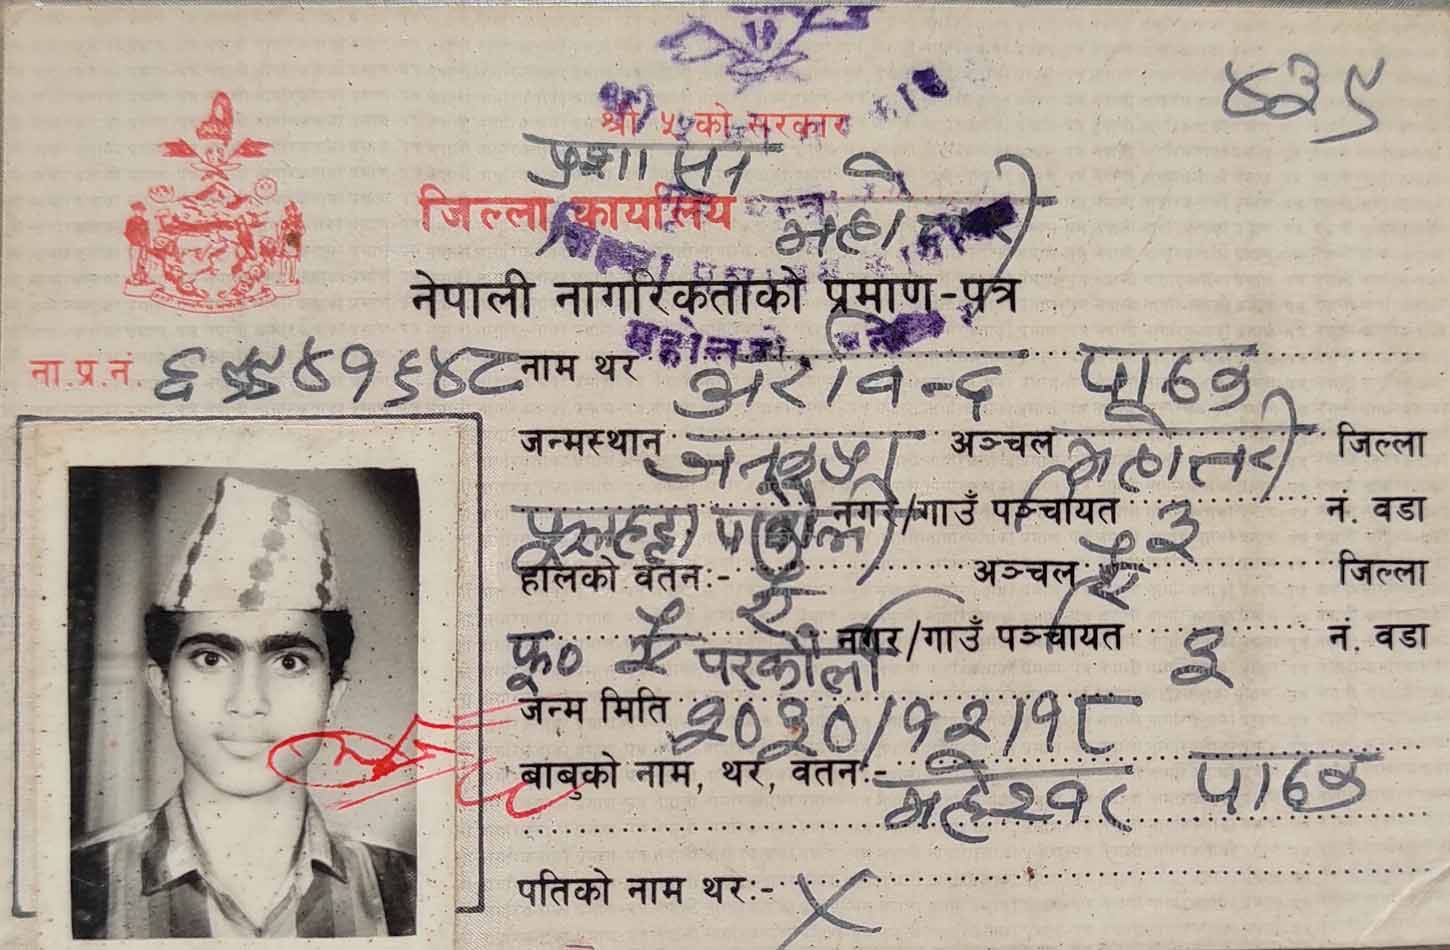 ४३९
श्री ५ को सरकार
प्रशासन
जिल्ला कार्यालय महोत्तरी
नेपाली नागरिकताको प्रमाण-पत्र
ना.प्र.नं. नाम थर अरविन्द पाठक
जन्मस्थान जनकपुर अञ्चल महोत्तरी जिल्ला
फुलहट्टा नगर/गाउँ पञ्चायत ३ नं. वडा
हालको वतन:- ऐ ऐ अञ्चल ऐ जिल्ला
फु० ऐ परकौली नगर/गाउँ पञ्चायत ३ नं. वडा
जन्म मिति २०३०/१२/१८
बाबुको नाम, थर, वतन:- महेश्वर पाठक
पतिको नाम थर:- X